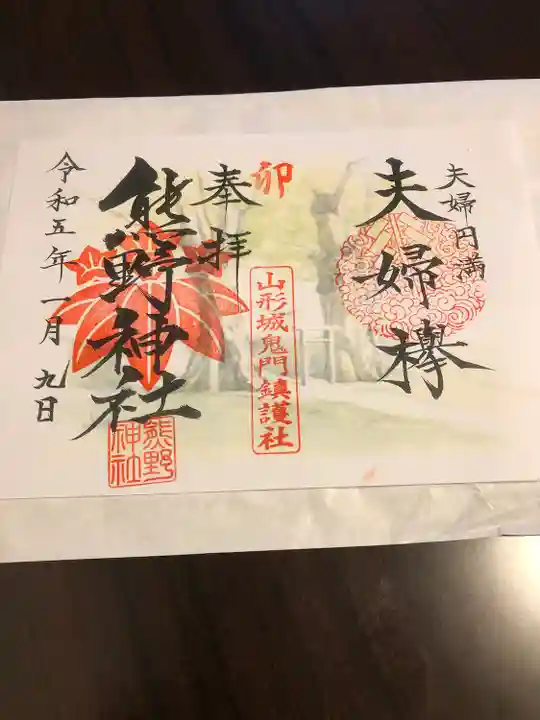 夫婦円満
夫婦欅
卯
山形城鬼門鎮護社
奉拝
熊野神社
熊野
神社
令和五年一月九日